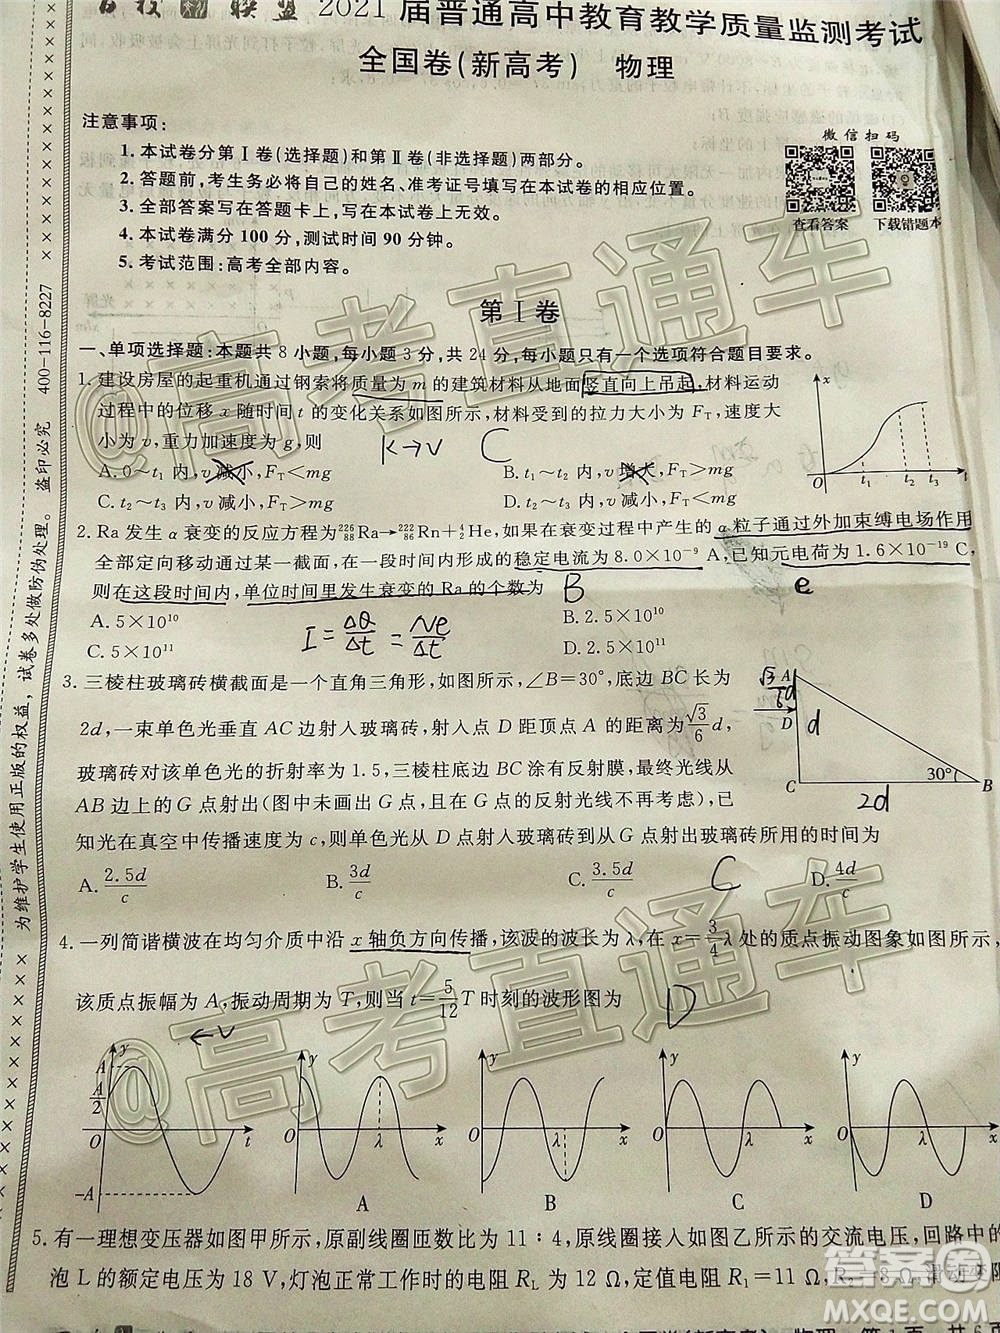 百校联盟 2021届普通高中教育教学质量监测考试
全国卷(新高考) 物理
注意事项:
微信扫码
1. 本试卷分第Ⅰ卷(选择题)和第Ⅱ卷(非选择题)两部分。
2. 答题前,考生务必将自己的姓名、准考证号填写在本试卷的相应位置。
3. 全部答案写在答题卡上,写在本试卷上无效。
4. 本试卷满分100分,测试时间90分钟。
5. 考试范围:高考全部内容。
查看答案 下载错题本
第Ⅰ卷
一、单项选择题:本题共8小题,每小题3分,共24分,每小题只有一个选项符合题目要求。
1. 建设房屋的起重机通过钢索将质量为m的建筑材料从地面竖直向上吊起,材料运动
过程中的位移x随时间t的变化关系如图所示,材料受到的拉力大小为F_T,速度大
小为v,重力加速度为g,则
k→v C
A. 0～t₁内,v减小,F_T<mg B. t₁～t₂内,v增大,F_T>mg
C. t₂～t₃内,v减小,F_T<mg D. t₂～t₃内,v减小,F_T>mg
x
O t₁ t₂ t₃ t
2. Ra发生α衰变的反应方程为²²⁶₈₈Ra→²²²₈₆Rn+⁴₂He,如果在衰变过程中产生的α粒子通过外加束缚电场作用
全部定向移动通过某一截面,在一段时间内形成的稳定电流为8.0×10⁻⁹ A,已知元电荷为1.6×10⁻¹⁹ C,
则在这段时间内,单位时间里发生衰变的Ra的个数为 B e
A. 5×10¹⁰ B. 2.5×10¹⁰
C. 5×10¹¹ D. 2.5×10¹¹
I=ΔQ/Δt=Ne/Δt
3. 三棱柱玻璃砖横截面是一个直角三角形,如图所示,∠B=30°,底边BC长为
2d,一束单色光垂直AC边射入玻璃砖,射入点D距顶点A的距离为√3/6 d,
玻璃砖对该单色光的折射率为1.5,三棱柱底边BC涂有反射膜,最终光线从
AB边上的G点射出(图中未画出G点,且在G点的反射光线不再考虑),已
知光在真空中传播速度为c,则单色光从D点射入玻璃砖到从G点射出玻璃砖所用的时间为
A. 2.5d/c B. 3d/c C. 3.5d/c C D. 4d/c
√3/6 d A
D d
C 30° B
2d
4. 一列简谐横波在均匀介质中沿x轴负方向传播,该波的波长为λ,在x=3/4λ处的质点振动图象如图所示,
该质点振幅为A,振动周期为T,则当t=5/12T时刻的波形图为 D
←v
y A A/2 O -A t
y O λ x
y O λ x
y O λ x
y O λ x
A B C D
5. 有一理想变压器如图甲所示,原副线圈匝数比为11∶4,原线圈接入如图乙所示的交流电压,回路中的
泡L的额定电压为18 V,灯泡正常工作时的电阻R_L为12 Ω,定值电阻R₁=11 Ω,R₂=8 Ω,滑动变阻
为维护学生使用正版的权益,试卷多处做防伪处理。 盗印必究 400-116-8227
@高考直通车
@高考直通车
@高考直通车
答案圈
MXQE.COM